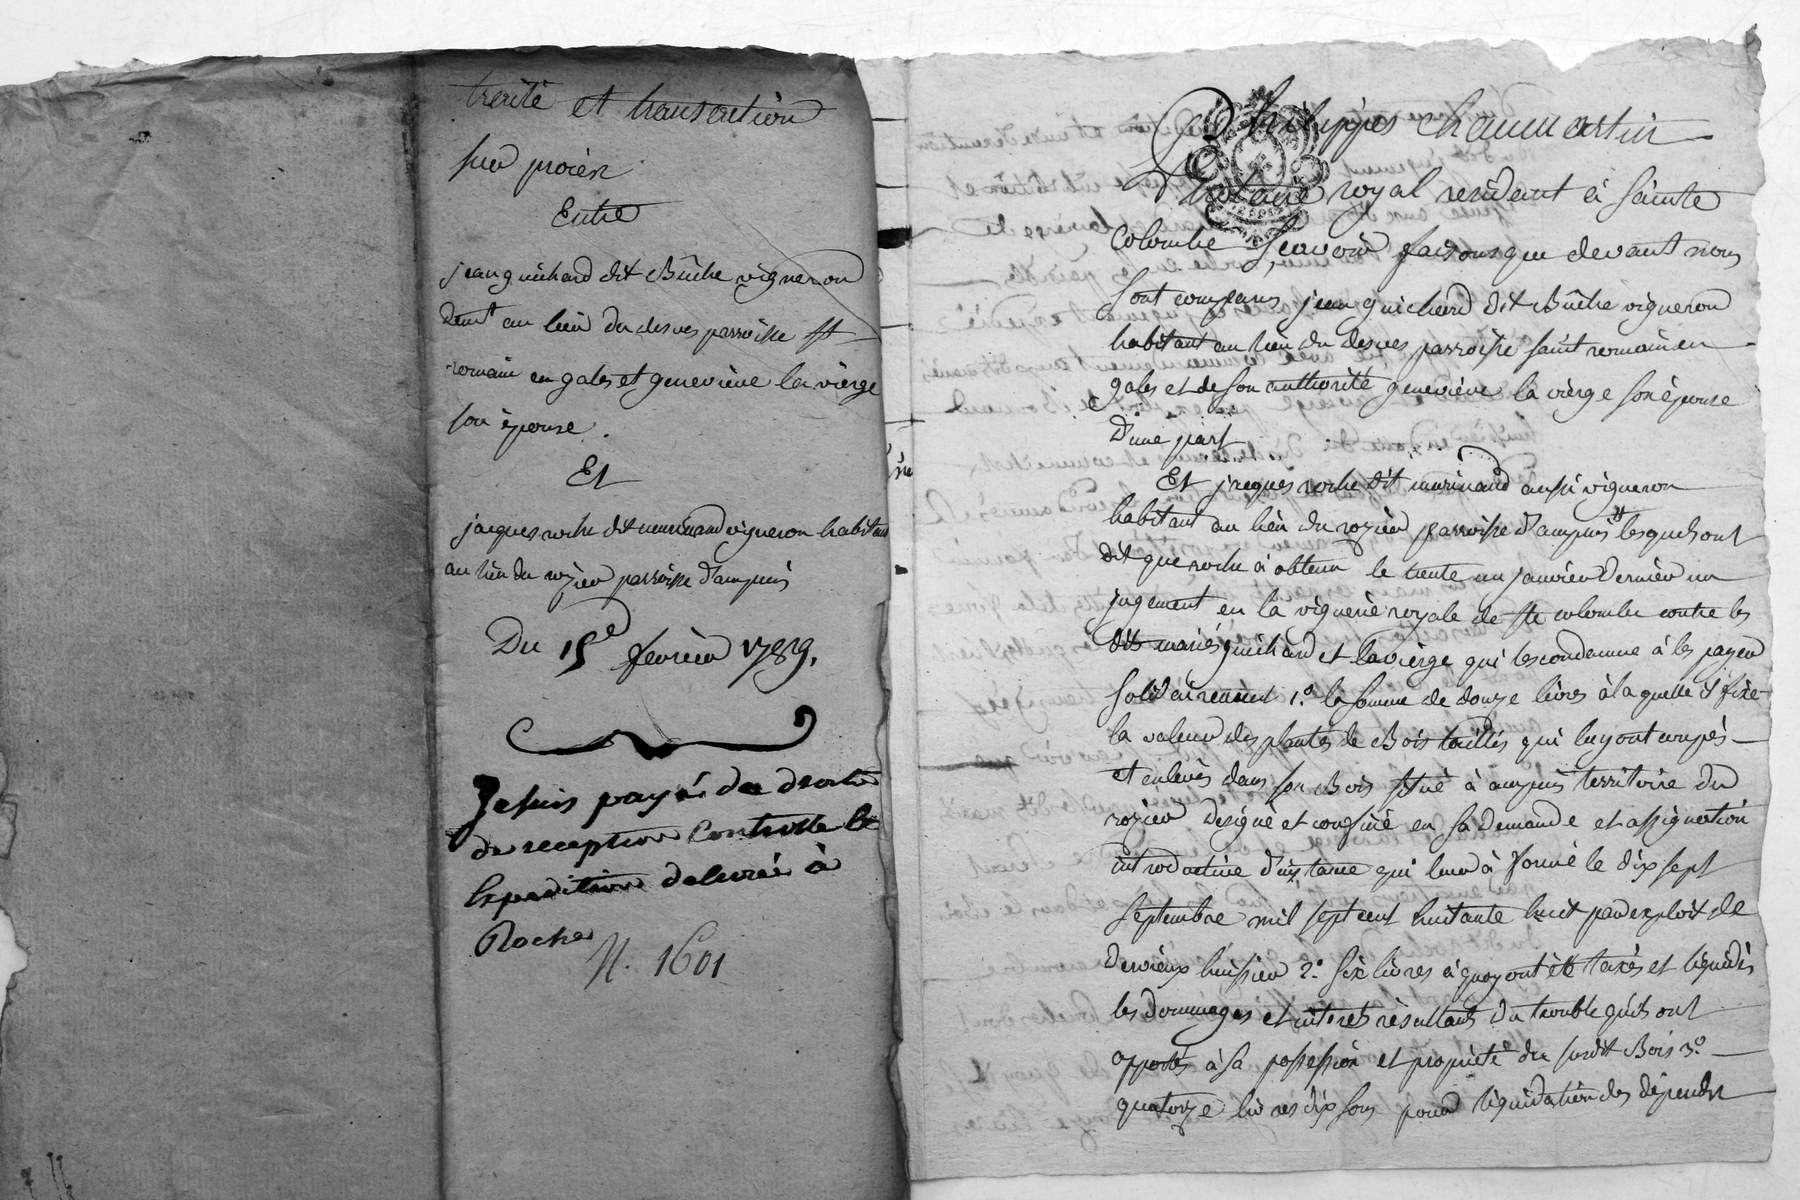 traité et transaction
sur procès
Entre
jean guichard dit Bûche vigneron
demt au lieu du desves parroisse st
romain en gales et geneviève la vierge
son épouse.
Et
jacques roche dit murinand vigneron habitant
au lieu du rozier parroisse d'ampuis
Du 15e fevrier 1789.
Je suis payé du droit
de reception Controlle et
Expedition delivrée à
Roche
N. 1601
Philippes Chaumartin
Notaire royal residant à sainte
Colombe Sçavoir faisons que devant nous
sont comparus jean guichard dit Bûche vigneron
habitant au lieu du desves parroisse saint romain en
gales et de son authorité geneviève la vierge son épouse
d'une part
Et jacques roche dit murinand aussi vigneron
habitant au lieu du rozier parroisse d'ampuis lesquels ont
dit que roche à obtenu le trente un janvier dernier un
jugement en la viguerie royale de ste colombe contre les
dits mariés guichard et lavierge qui les condamne à les payer
solidairement 1.° la somme de douze livres à laquelle il fixe
la valeur des plantes de Bois taillis qui luy ont coupés
et enlevés dans son Bois situé à ampuis territoire du
rozier designé et confiné en sa demande et assignation
introductive d'instance qui leur à formé le dix sept
septembre mil sept cent huitante huit par exploit de
dervieux huissier 2.° six livres à quoy ont été taxés et liquidés
les dommages et interets résultants du trouble qu'ils ont
apportés à sa possession et propriété du susdit Bois 3.°
quatorze livres dix sous pour liquidation des dépends